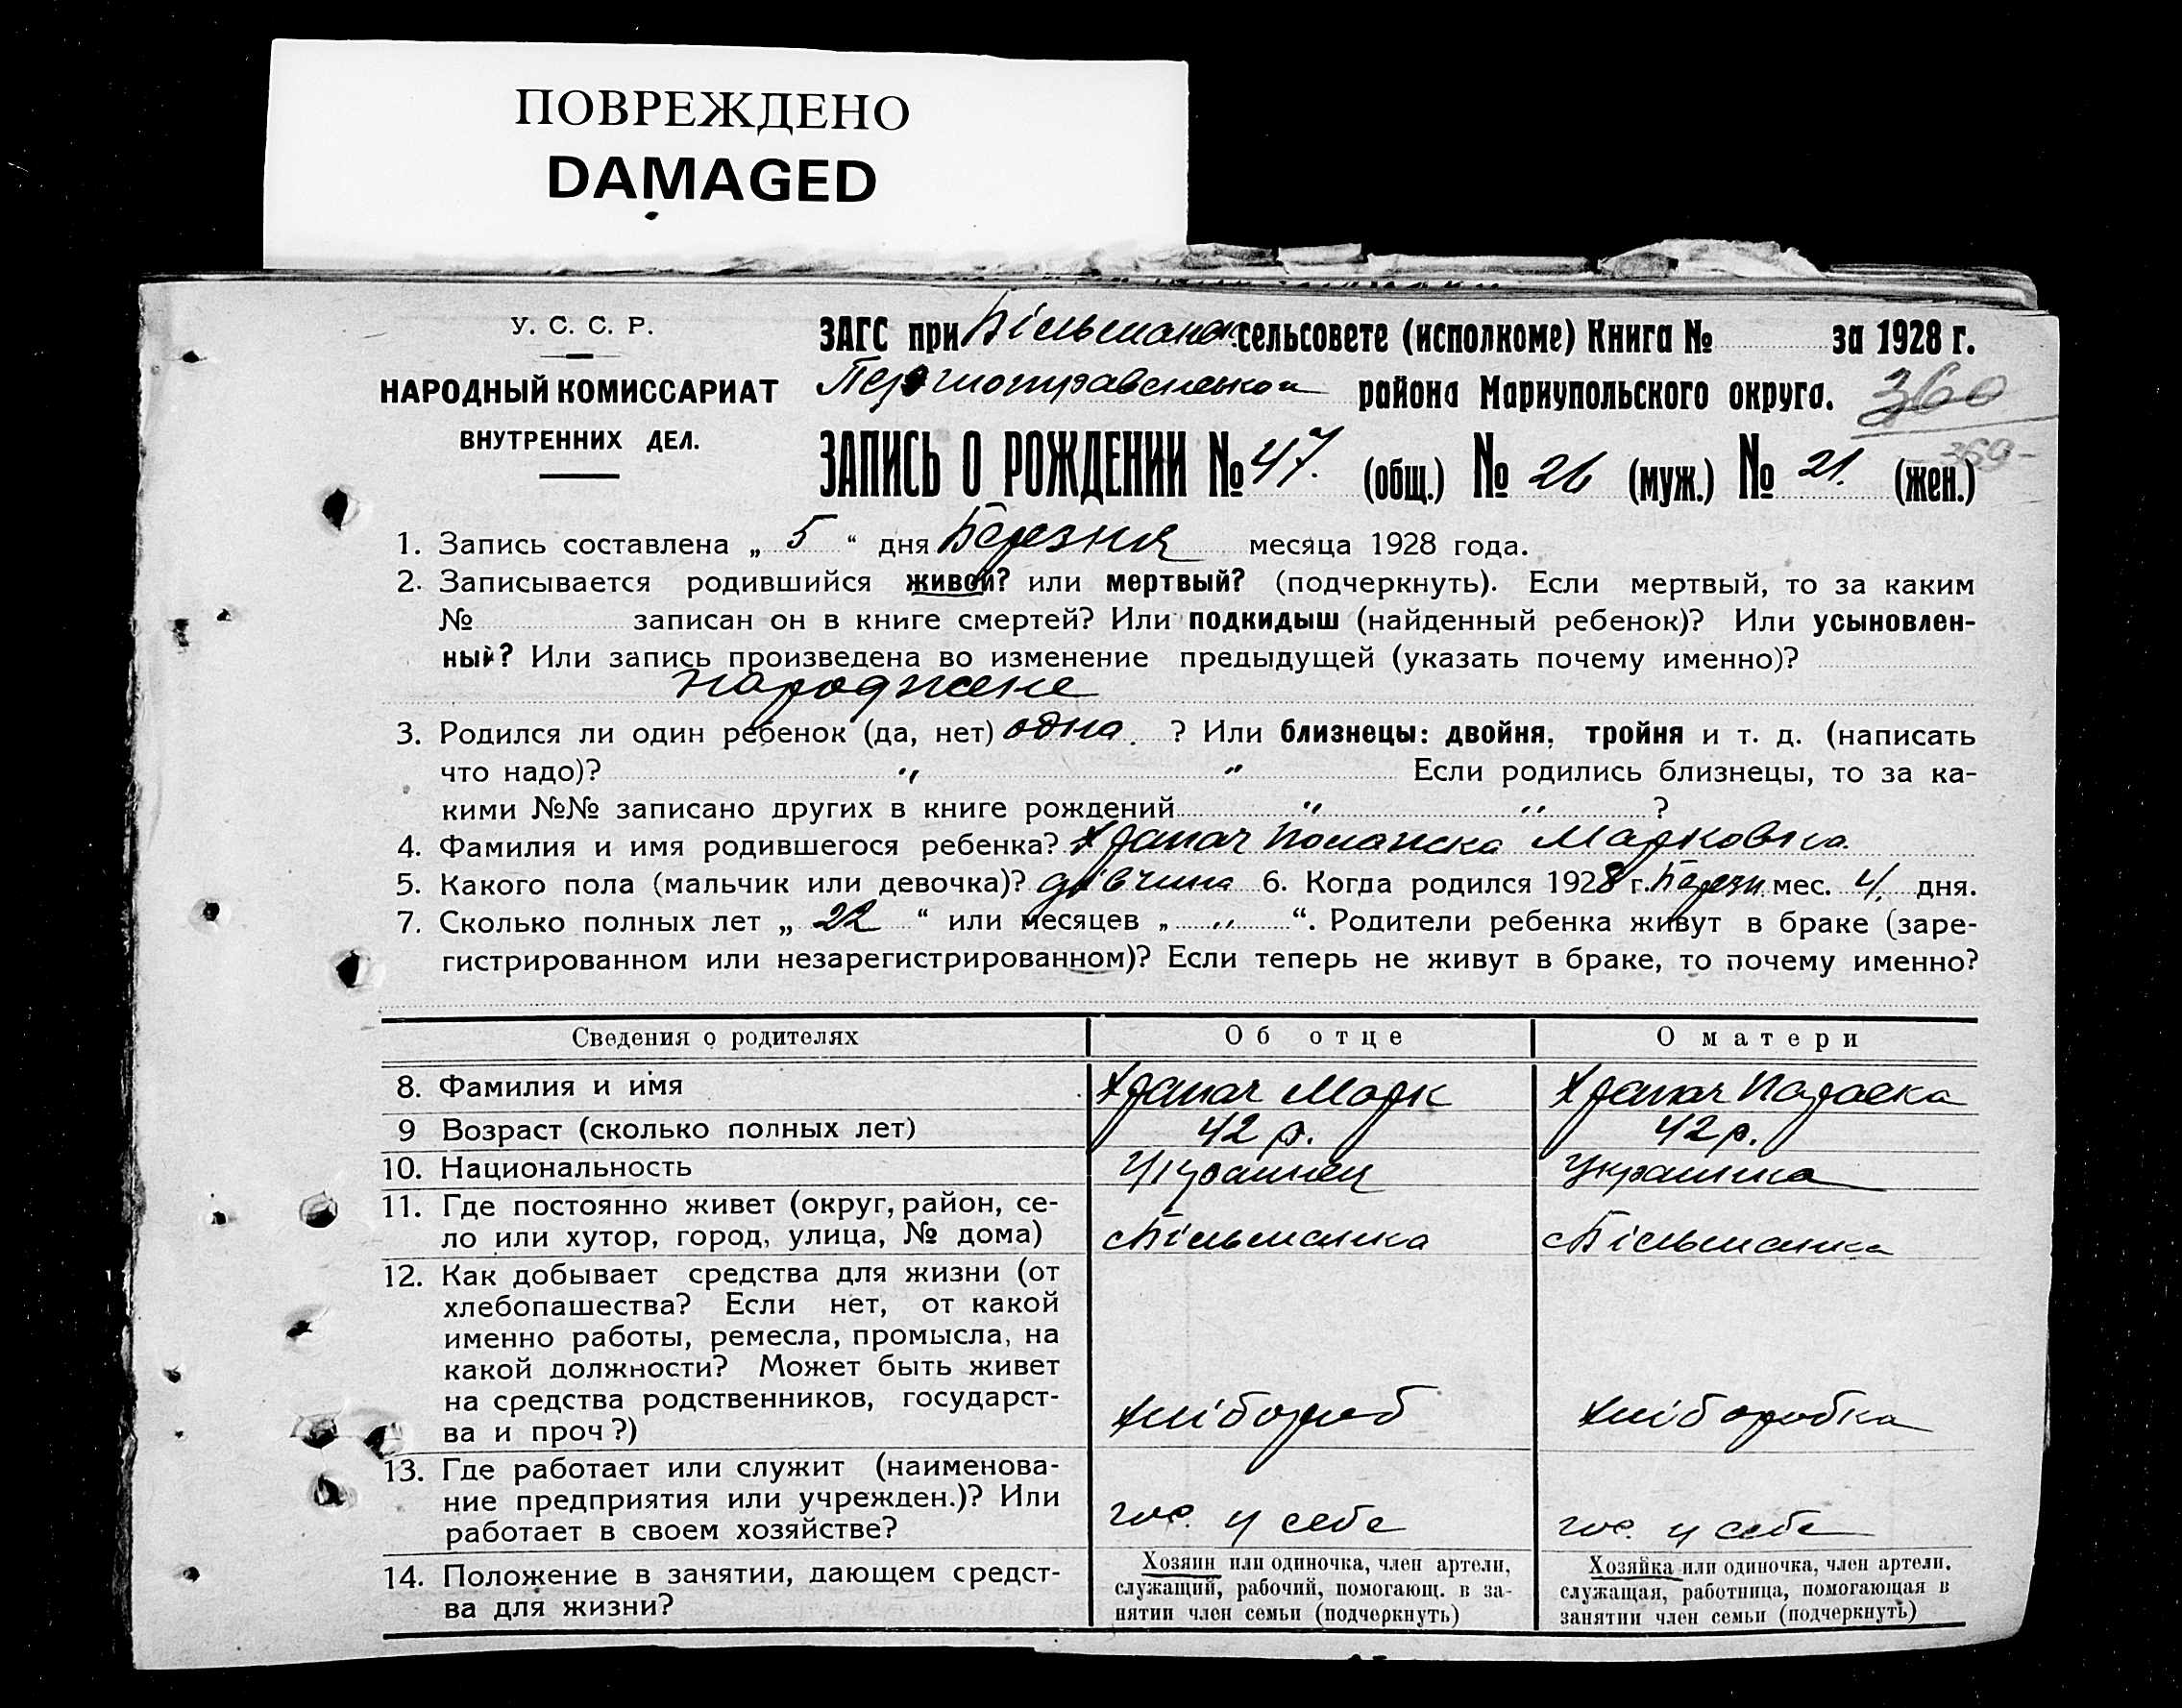 ПОВРЕЖДЕНО
DAMAGED
У. С. С. Р.
НАРОДНЫЙ КОМИССАРИАТ
ВНУТРЕННИХ ДЕЛ.
ЗАГС при Більманск. сельсовете (исполкоме) Книга № за 1928 г.
района Мариупольского округа. 360
369-
ЗАПИСЬ О РОЖДЕНИИ № 47. (общ.) № 26 (муж.) № 21. (жен.)
1. Запись составлена „ 5 “ дня Березня месяца 1928 года.
2. Записывается родившийся живой? или мертвый? (подчеркнуть). Если мертвый, то за каким
№ записан он в книге смертей? Или подкидыш (найденный ребенок)? Или усыновлен-
ный? Или запись произведена во изменение предыдущей (указать почему именно)?
народжене
3. Родился ли один ребенок (да, нет) одна. ? Или близнецы: двойня, тройня и т. д. (написать
что надо)? „ „ Если родились близнецы, то за ка-
кими №№ записано других в книге рождений „ „ ?
4. Фамилия и имя родившегося ребенка? Храпач Марковна.
5. Какого пола (мальчик или девочка)? дівчина 6. Когда родился 1928 г. Березн. мес. 4. дня.
7. Сколько полных лет „ 22 “ или месяцев „ „ “. Родители ребенка живут в браке (заре-
гистрированном или незарегистрированном)? Если теперь не живут в браке, то почему именно?
Сведения о родителях Об отце О матери
8. Фамилия и имя Храпач Марк Храпач Параска
9 Возраст (сколько полных лет) 42 р. 42 р.
10. Национальность Українец Українка
11. Где постоянно живет (округ, район, се-
ло или хутор, город, улица, № дома) Більманка Більманка
12. Как добывает средства для жизни (от
хлебопашества? Если нет, от какой
именно работы, ремесла, промысла, на
какой должности? Может быть живет
на средства родственников, государст-
ва и проч?) хлібороб хліборобка
13. Где работает или служит (наименова-
ние предприятия или учрежден.)? Или
работает в своем хозяйстве? гос. у себе гос. у себе
14. Положение в занятии, дающем средст-
ва для жизни?
Хозяин или одиночка, член артели,
служащий, рабочий, помогающ. в за-
нятии член семьи (подчеркнуть)
Хозяйка или одиночка, член артели,
служащая, работница, помогающая в
занятии член семьи (подчеркнуть)